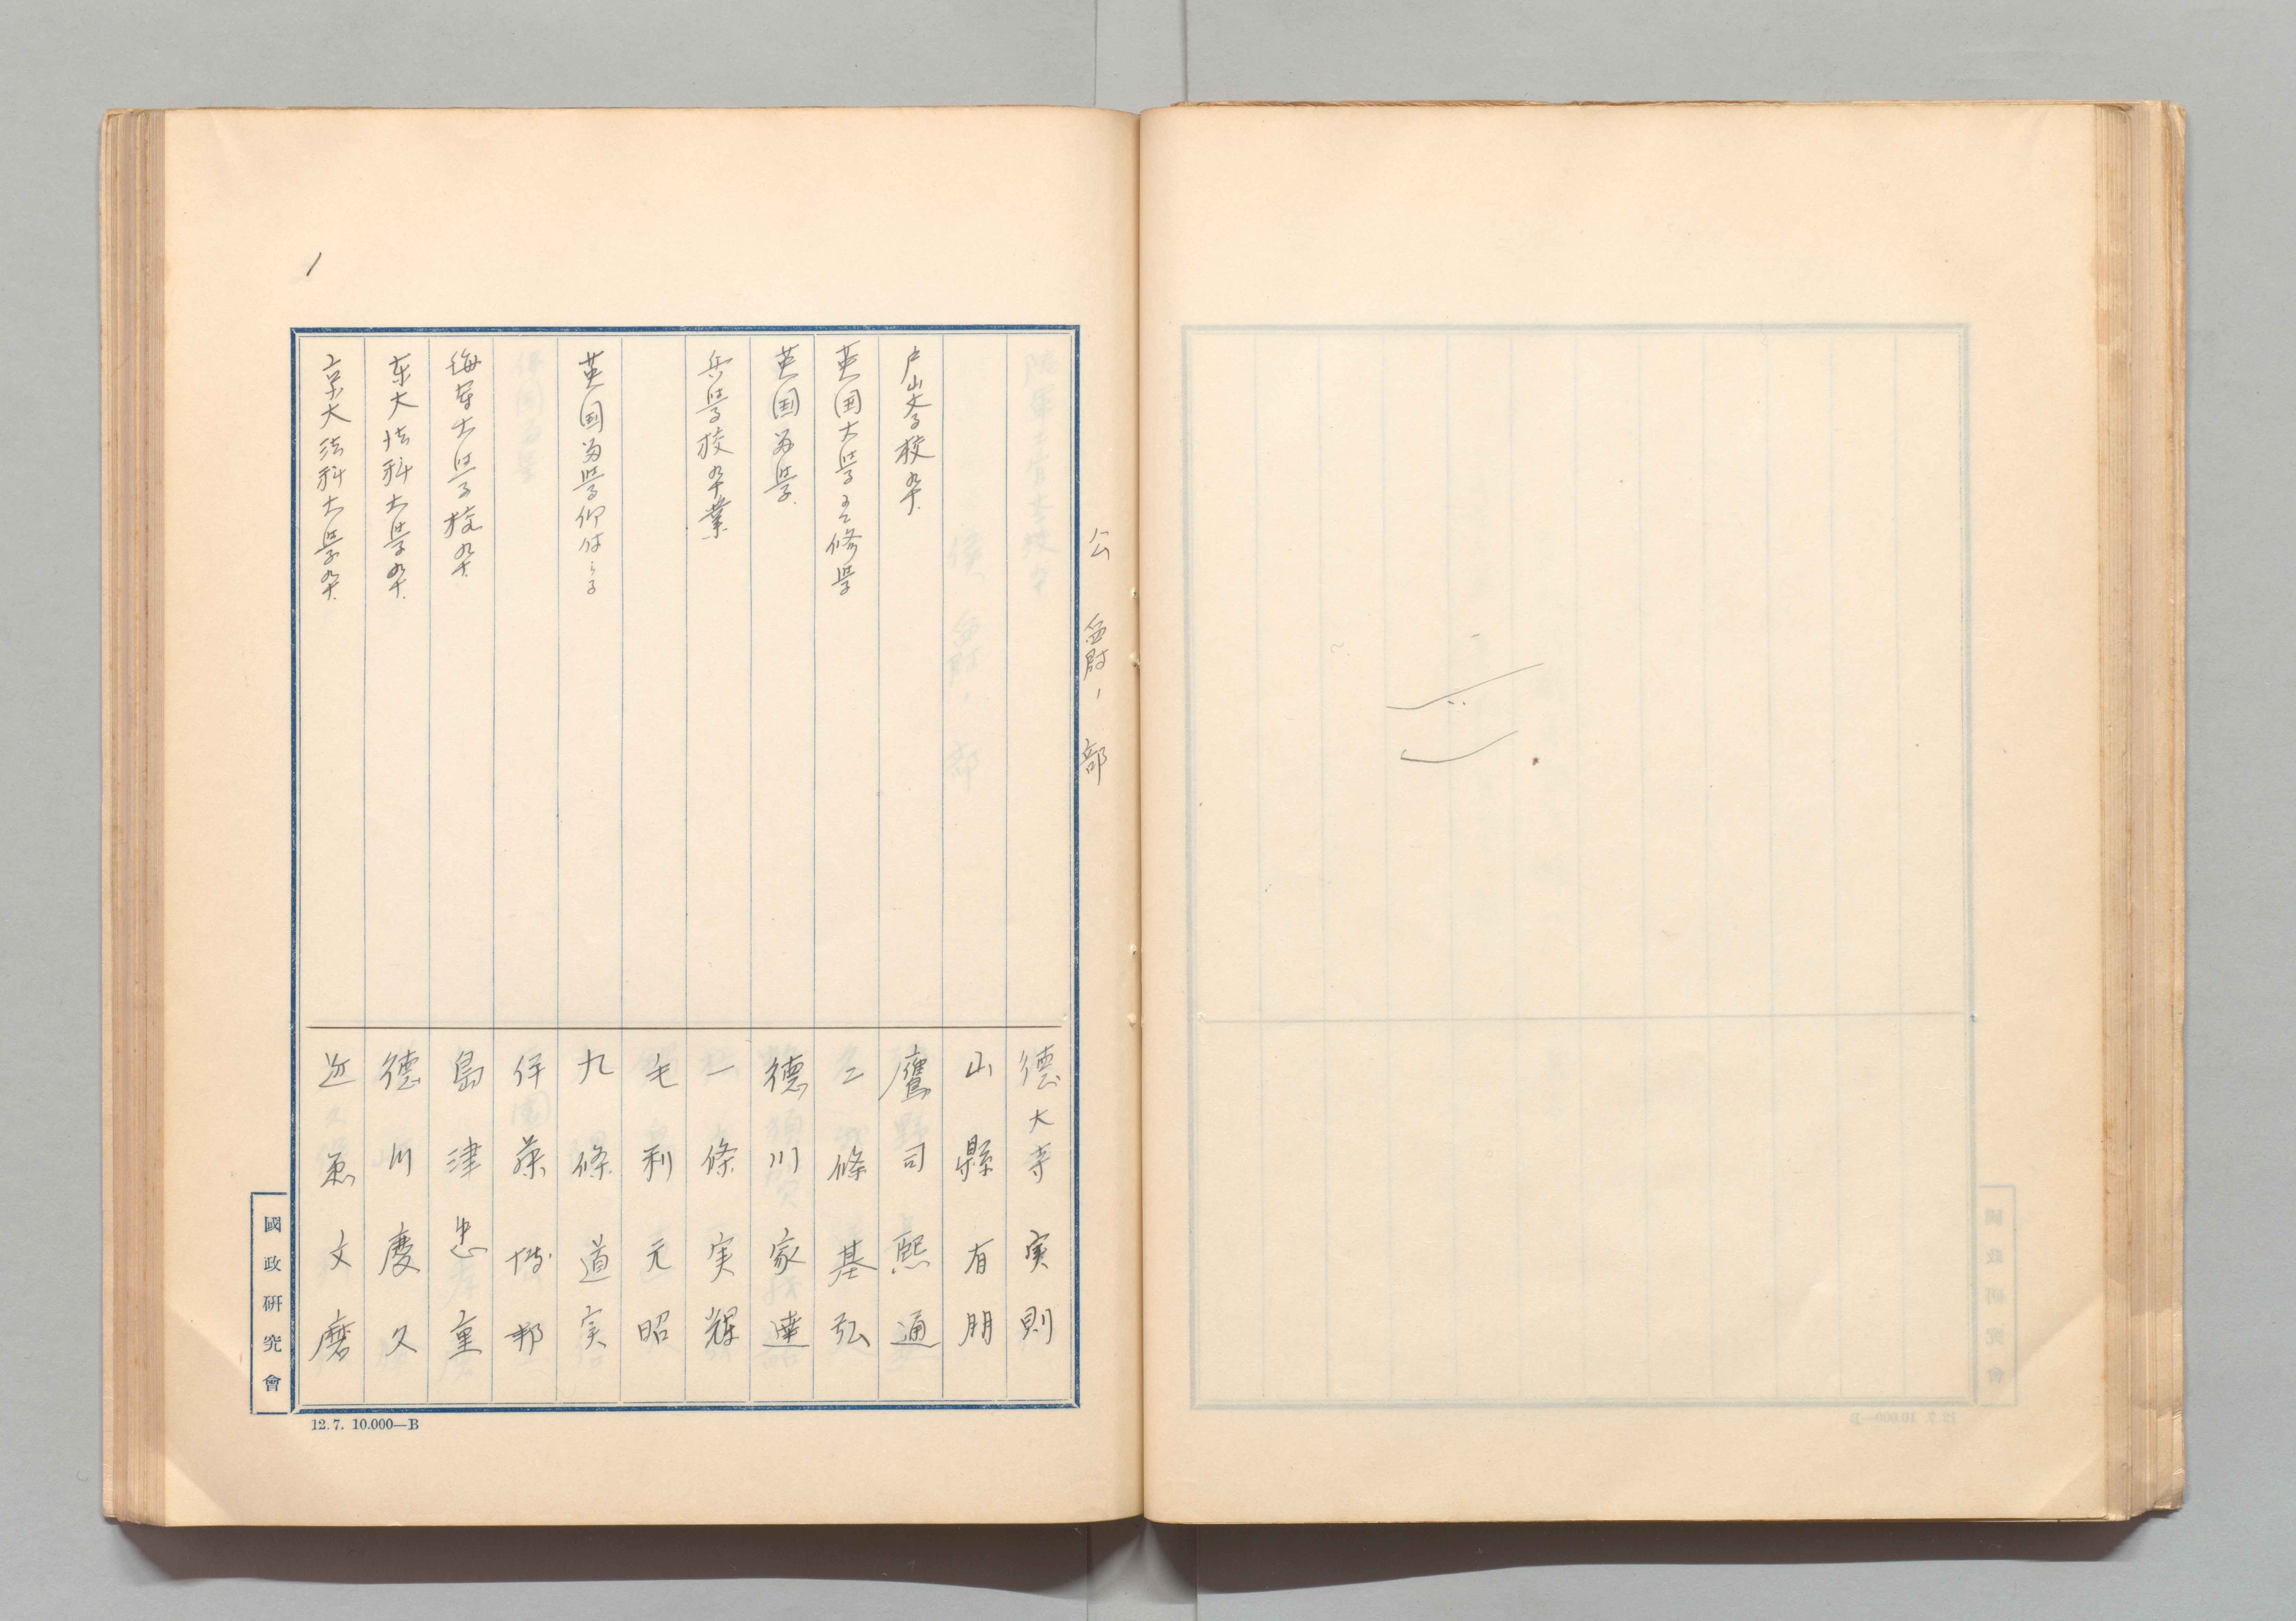 公爵ノ部
德大寺実則
山縣有朋
戸山学校卆.
鷹司熙通
英国大學ニ修學
二條基弘
英国留學.
徳川家達
兵學校卆業
一條実輝
毛利元昭
英国留學仰付
九條道実
伊藤博邦
海軍大學校卆.
島津忠重
東大法科大學卆.
徳川慶久
京大法科大學卆.
近衛文麿
1
國政研究會
12.7. 10.000—B